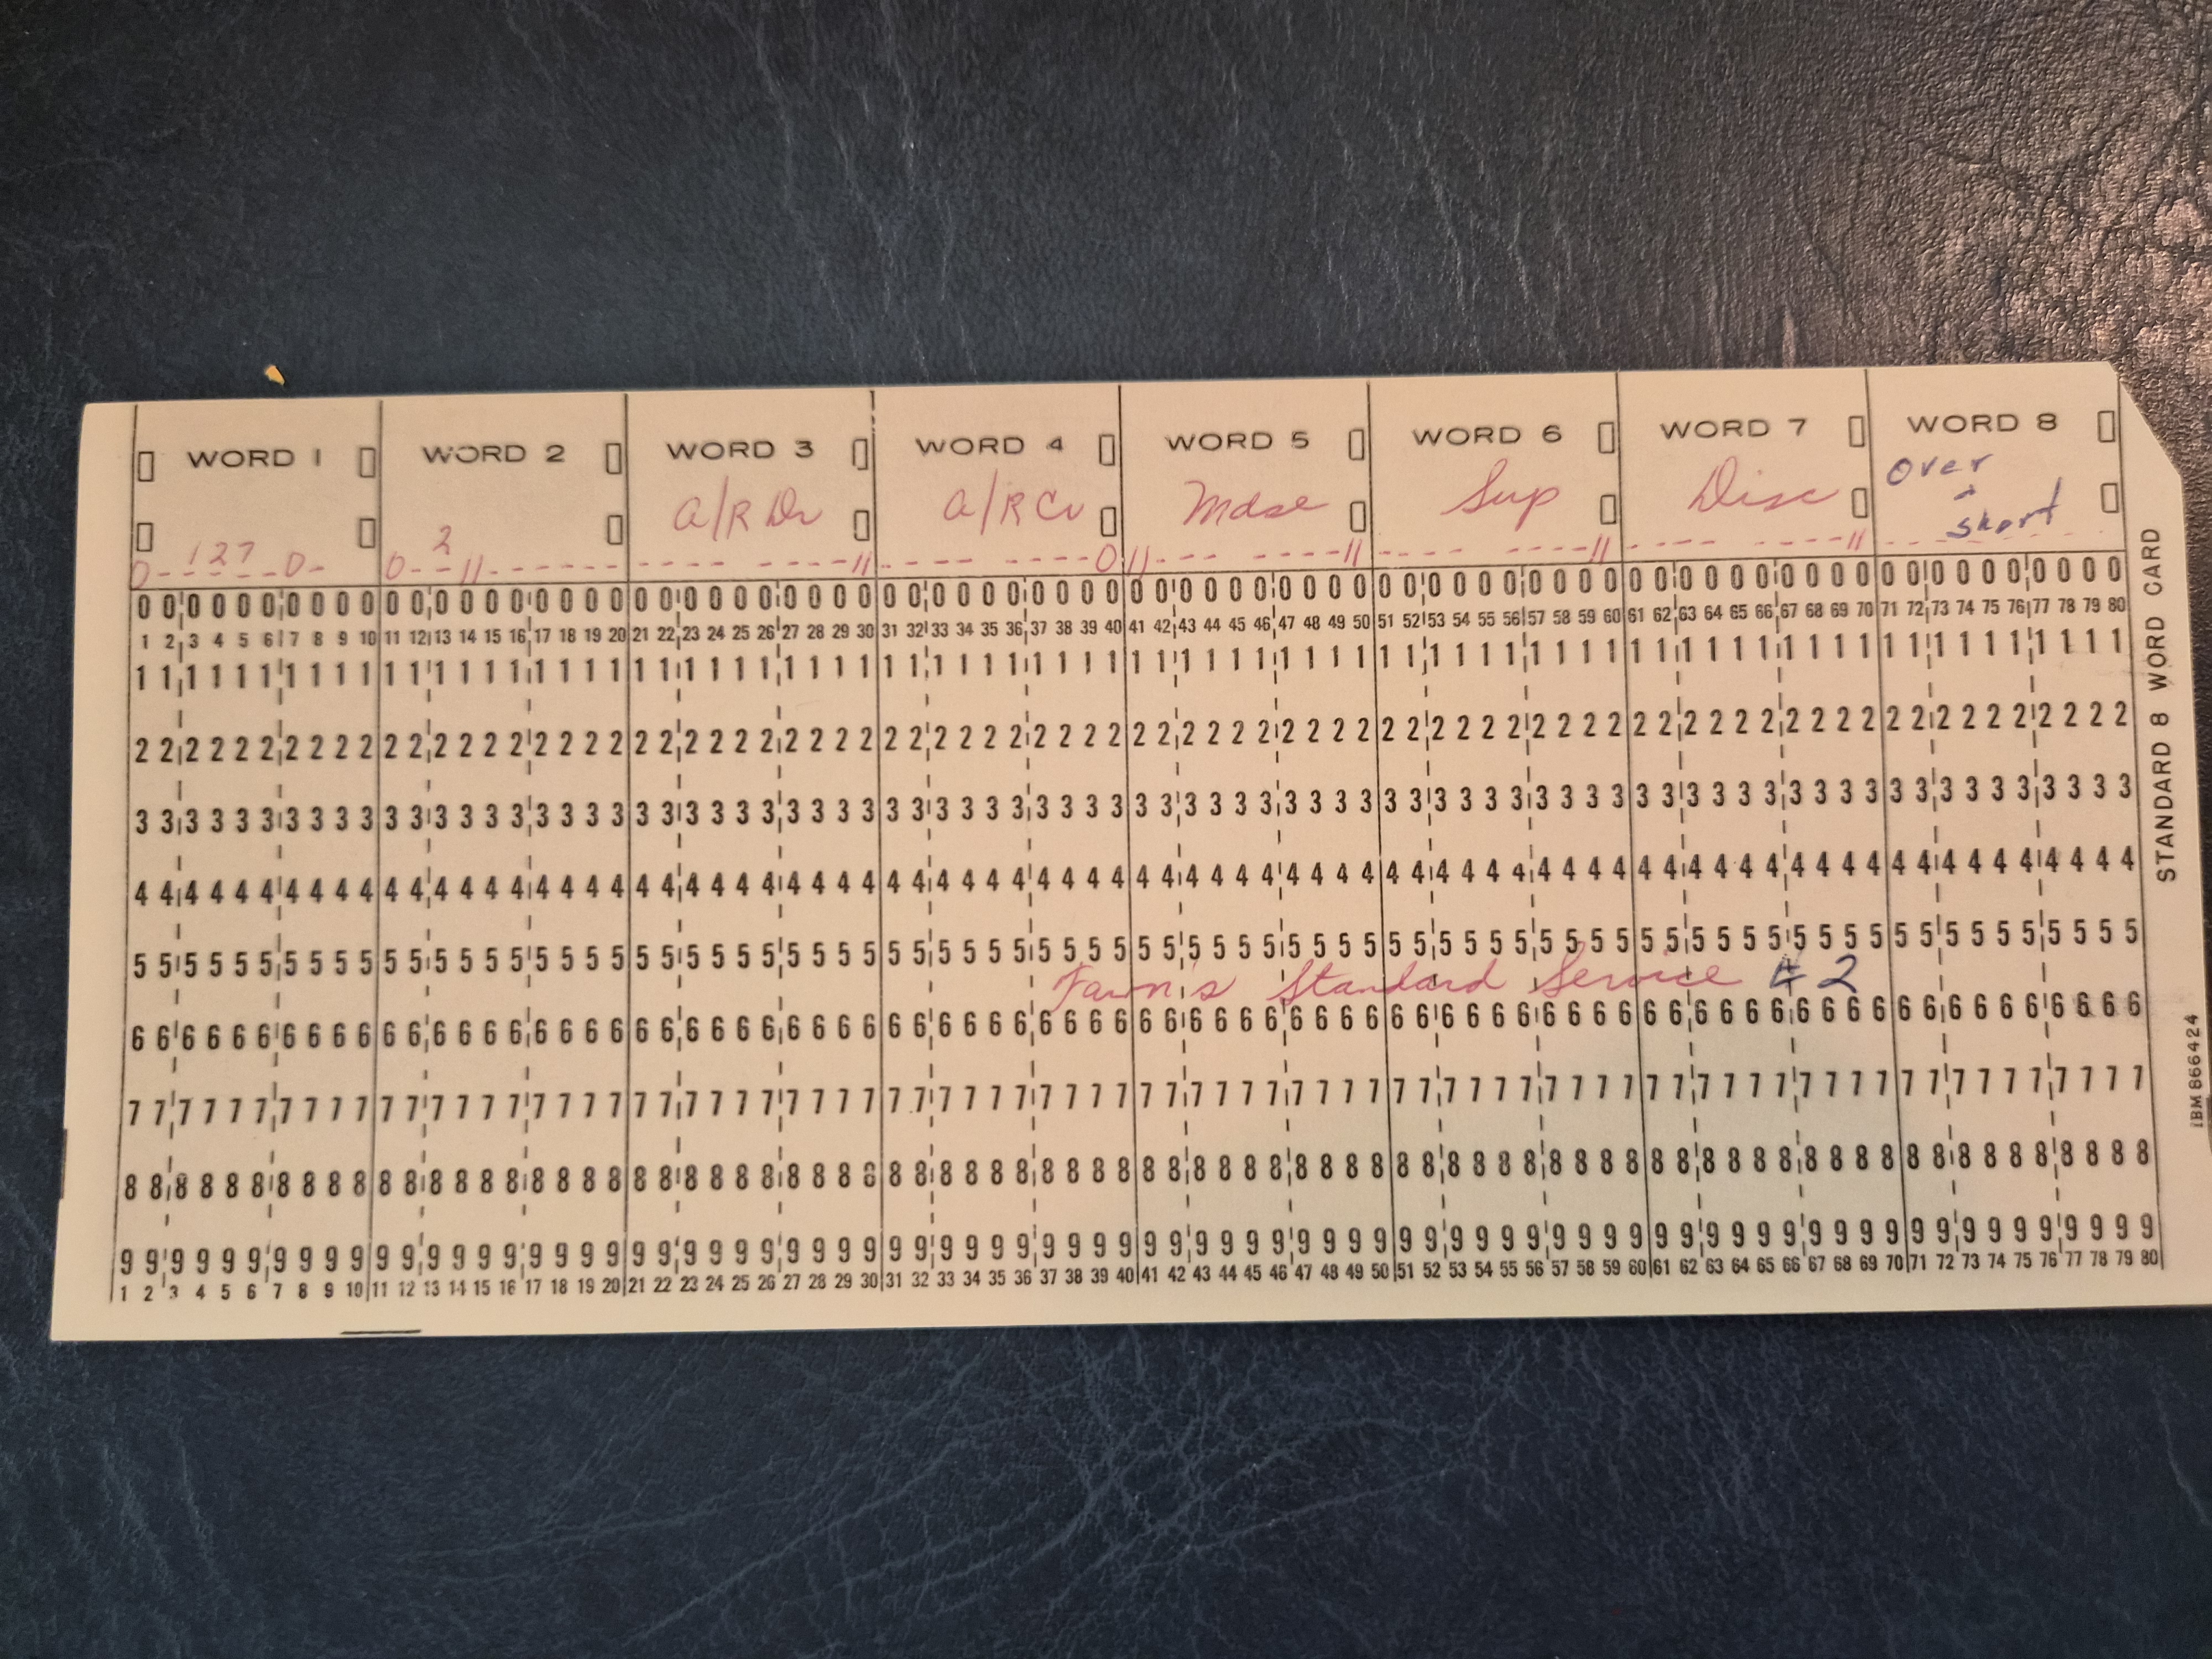 WORD 1 WORD 2 WORD 3 WORD 4 WORD 5 WORD 6 WORD 7 WORD 8
a/R Dr a/R Cr Mdse Sup Disc over & short
0--127-0- 0--11
2
00000000000000000000000000000000000000000000000000000000000000000000000000000000
1 2 3 4 5 6 7 8 9 10 11 12 13 14 15 16 17 18 19 20 21 22 23 24 25 26 27 28 29 30 31 32 33 34 35 36 37 38 39 40 41 42 43 44 45 46 47 48 49 50 51 52 53 54 55 56 57 58 59 60 61 62 63 64 65 66 67 68 69 70 71 72 73 74 75 76 77 78 79 80
11111111111111111111111111111111111111111111111111111111111111111111111111111111
22222222222222222222222222222222222222222222222222222222222222222222222222222222
33333333333333333333333333333333333333333333333333333333333333333333333333333333
44444444444444444444444444444444444444444444444444444444444444444444444444444444
55555555555555555555555555555555555555555555555555555555555555555555555555555555
Standard Service #2
66666666666666666666666666666666666666666666666666666666666666666666666666666666
77777777777777777777777777777777777777777777777777777777777777777777777777777777
88888888888888888888888888888888888888888888888888888888888888888888888888888888
99999999999999999999999999999999999999999999999999999999999999999999999999999999
1 2 3 4 5 6 7 8 9 10 11 12 13 14 15 16 17 18 19 20 21 22 23 24 25 26 27 28 29 30 31 32 33 34 35 36 37 38 39 40 41 42 43 44 45 46 47 48 49 50 51 52 53 54 55 56 57 58 59 60 61 62 63 64 65 66 67 68 69 70 71 72 73 74 75 76 77 78 79 80
STANDARD 8 WORD CARD
IBM 866424